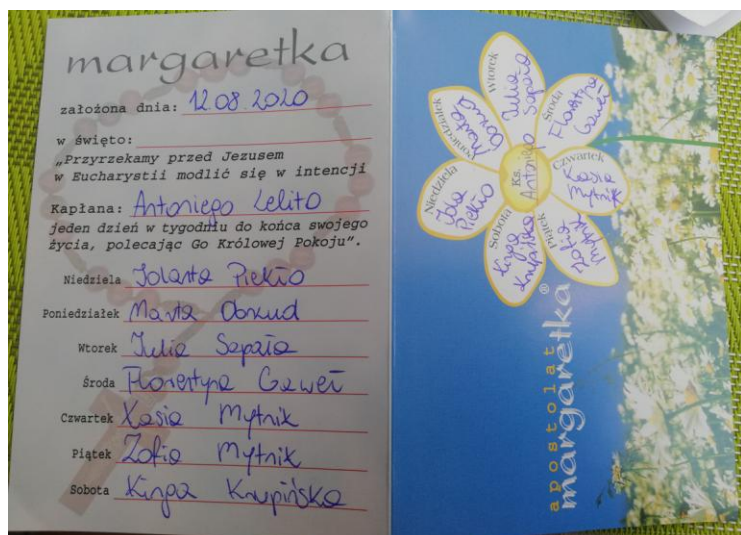 margaretka
założona dnia: 12.08.2020
w święto:
„Przyrzekamy przed Jezusem
w Eucharystii modlić się w intencji
Kapłana: Antoniego Lelito
jeden dzień w tygodniu do końca swojego
życia, polecając Go Królowej Pokoju”.
Niedziela Jolanta Piekło
Poniedziałek Marta Obrzud
Wtorek Julia Sapała
Środa Florentyna Gaweł
Czwartek Kasia Mytnik
Piątek Zofia Mytnik
Sobota Kinga Krupińska
Ks.
Antoniego
Niedziela
Jola
Piekło
Poniedziałek
Marta
Obrzud
Wtorek
Julia
Sapała
Środa
Florentyna
Gaweł
Czwartek
Kasia
Mytnik
Piątek
Zofia
Mytnik
Sobota
Kinga
Krupińska
apostolat
margaretka®